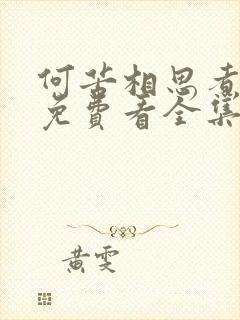 何苦相思煮
免费看全集
黄雯